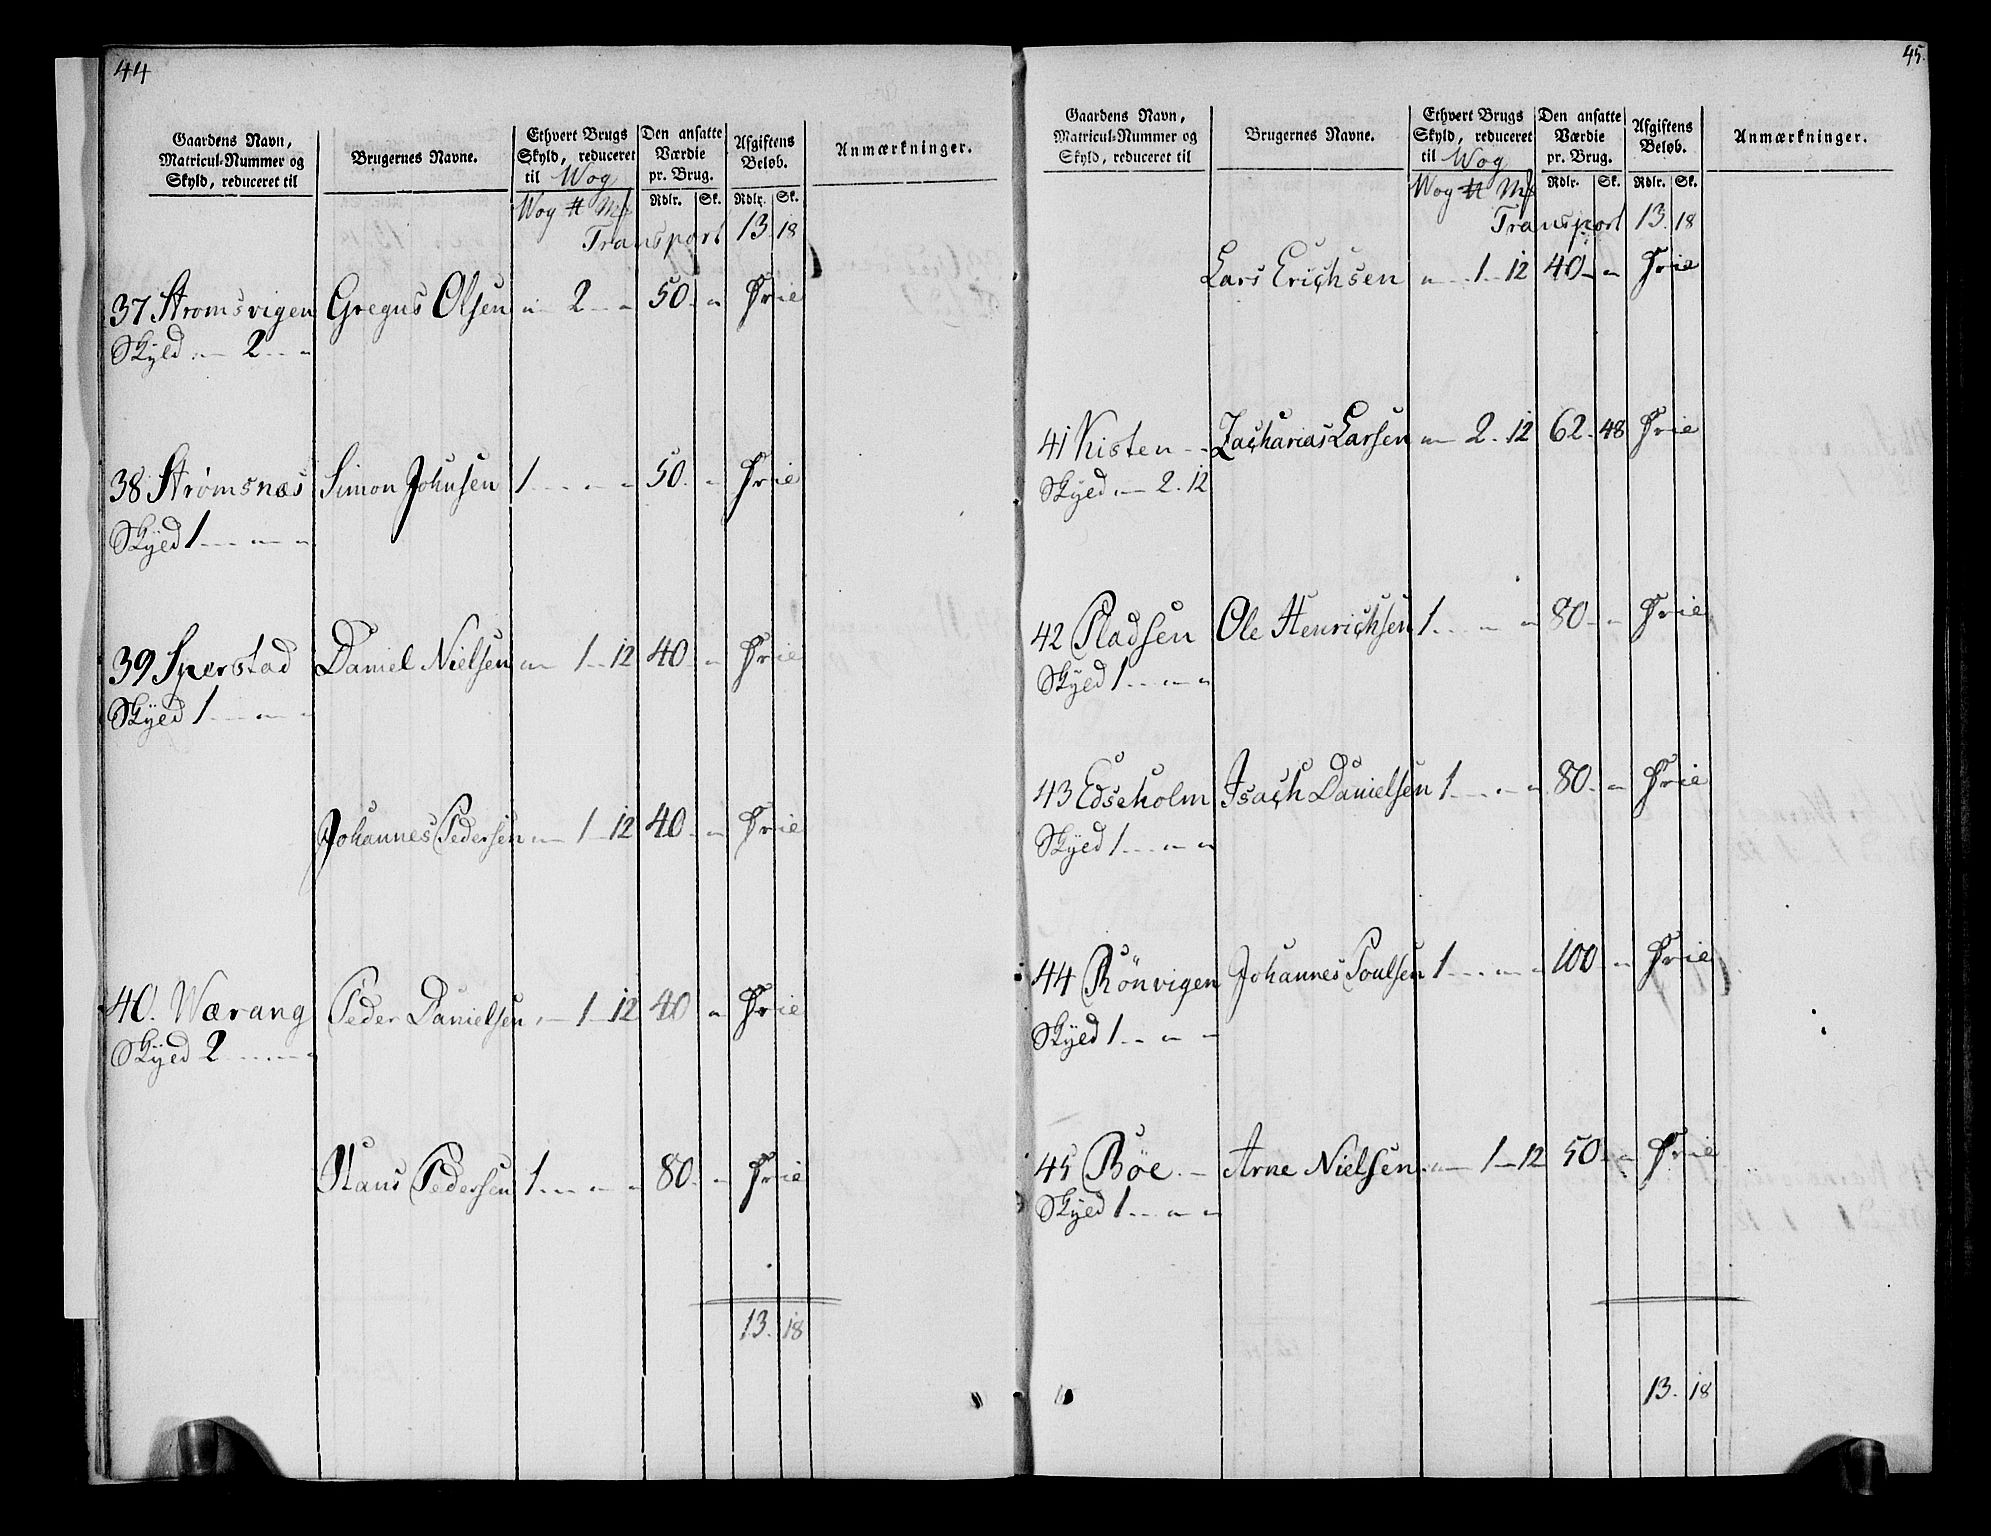 44
Gaardens Navn,
Matricul-Nummer og
Skyld, reduceret til
Brugernes Navne.
Ethvert Brugs
Skyld, reduceret
til Wog
Wog # Mk
Den ansatte
Værdie
pr. Brug.
Rdlr. Sk.
Afgiftens
Beløb.
Rdlr. Sk.
Anmærkninger.
Transport 13. 18
37 Stromsvigen Gregus Olsen " 2 " 50 " Frie
Skyld " 2 "
38 Strømsnæs Simon Johnsen 1 " " 50 " Frie
Skyld 1 " "
39 Sperstad Daniel Nielsen " 1 12 40 " Frie
Skyld 1 " "
Johannes Pedersen " 1 12 40 " Frie
40. Wærang Peder Danielsen " 1 12 40 " Frie
Skyld 2 " "
Hans Pedersen 1 " " 80 " Frie
13. 18
45.
Gaardens Navn,
Matricul-Nummer og
Skyld, reduceret til
Brugernes Navne.
Ethvert Brugs
Skyld, reduceret
til Wog
Wog # Mk
Den ansatte
Værdie
pr. Brug.
Rdlr. Sk.
Afgiftens
Beløb.
Rdlr. Sk.
Anmærkninger.
Transport 13. 18
Lars Erichsen " 1 12 40 " Frie
41 Kisten Zacharias Larsen " 2. 12 62. 48 Frie
Skyld " 2. 12
42 Pladsen Ole Henrichsen 1 " " 80 " Frie
Skyld 1 " "
43 Edseholm Isach Danielsen 1 " " 80 " Frie
Skyld 1 " "
44 Rönvigen Johannes Poulsen 1 " " 100 " Frie
Skyld 1 " "
45 Böe Arne Nielsen " 1 12 50 " Frie
Skyld 1 " "
13. 18